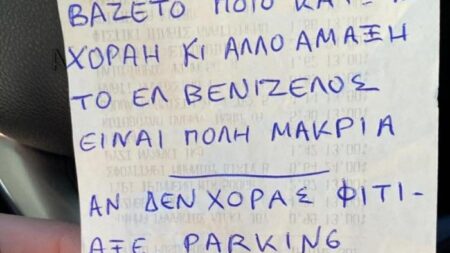 ΒΑΖΕΤΟ ΠΟΙΟ
ΧΟΡΑΗ ΚΙ ΑΛΛΟ ΑΜΑΞΗ
ΤΟ ΕΛ ΒΕΝΙΖΕΛΟΣ
ΕΙΝΑΙ ΠΟΛΗ ΜΑΚΡΙΑ
ΑΝ ΔΕΝ ΧΟΡΑΣ ΦΙΤΙ-
ΑΞΕ PARKING